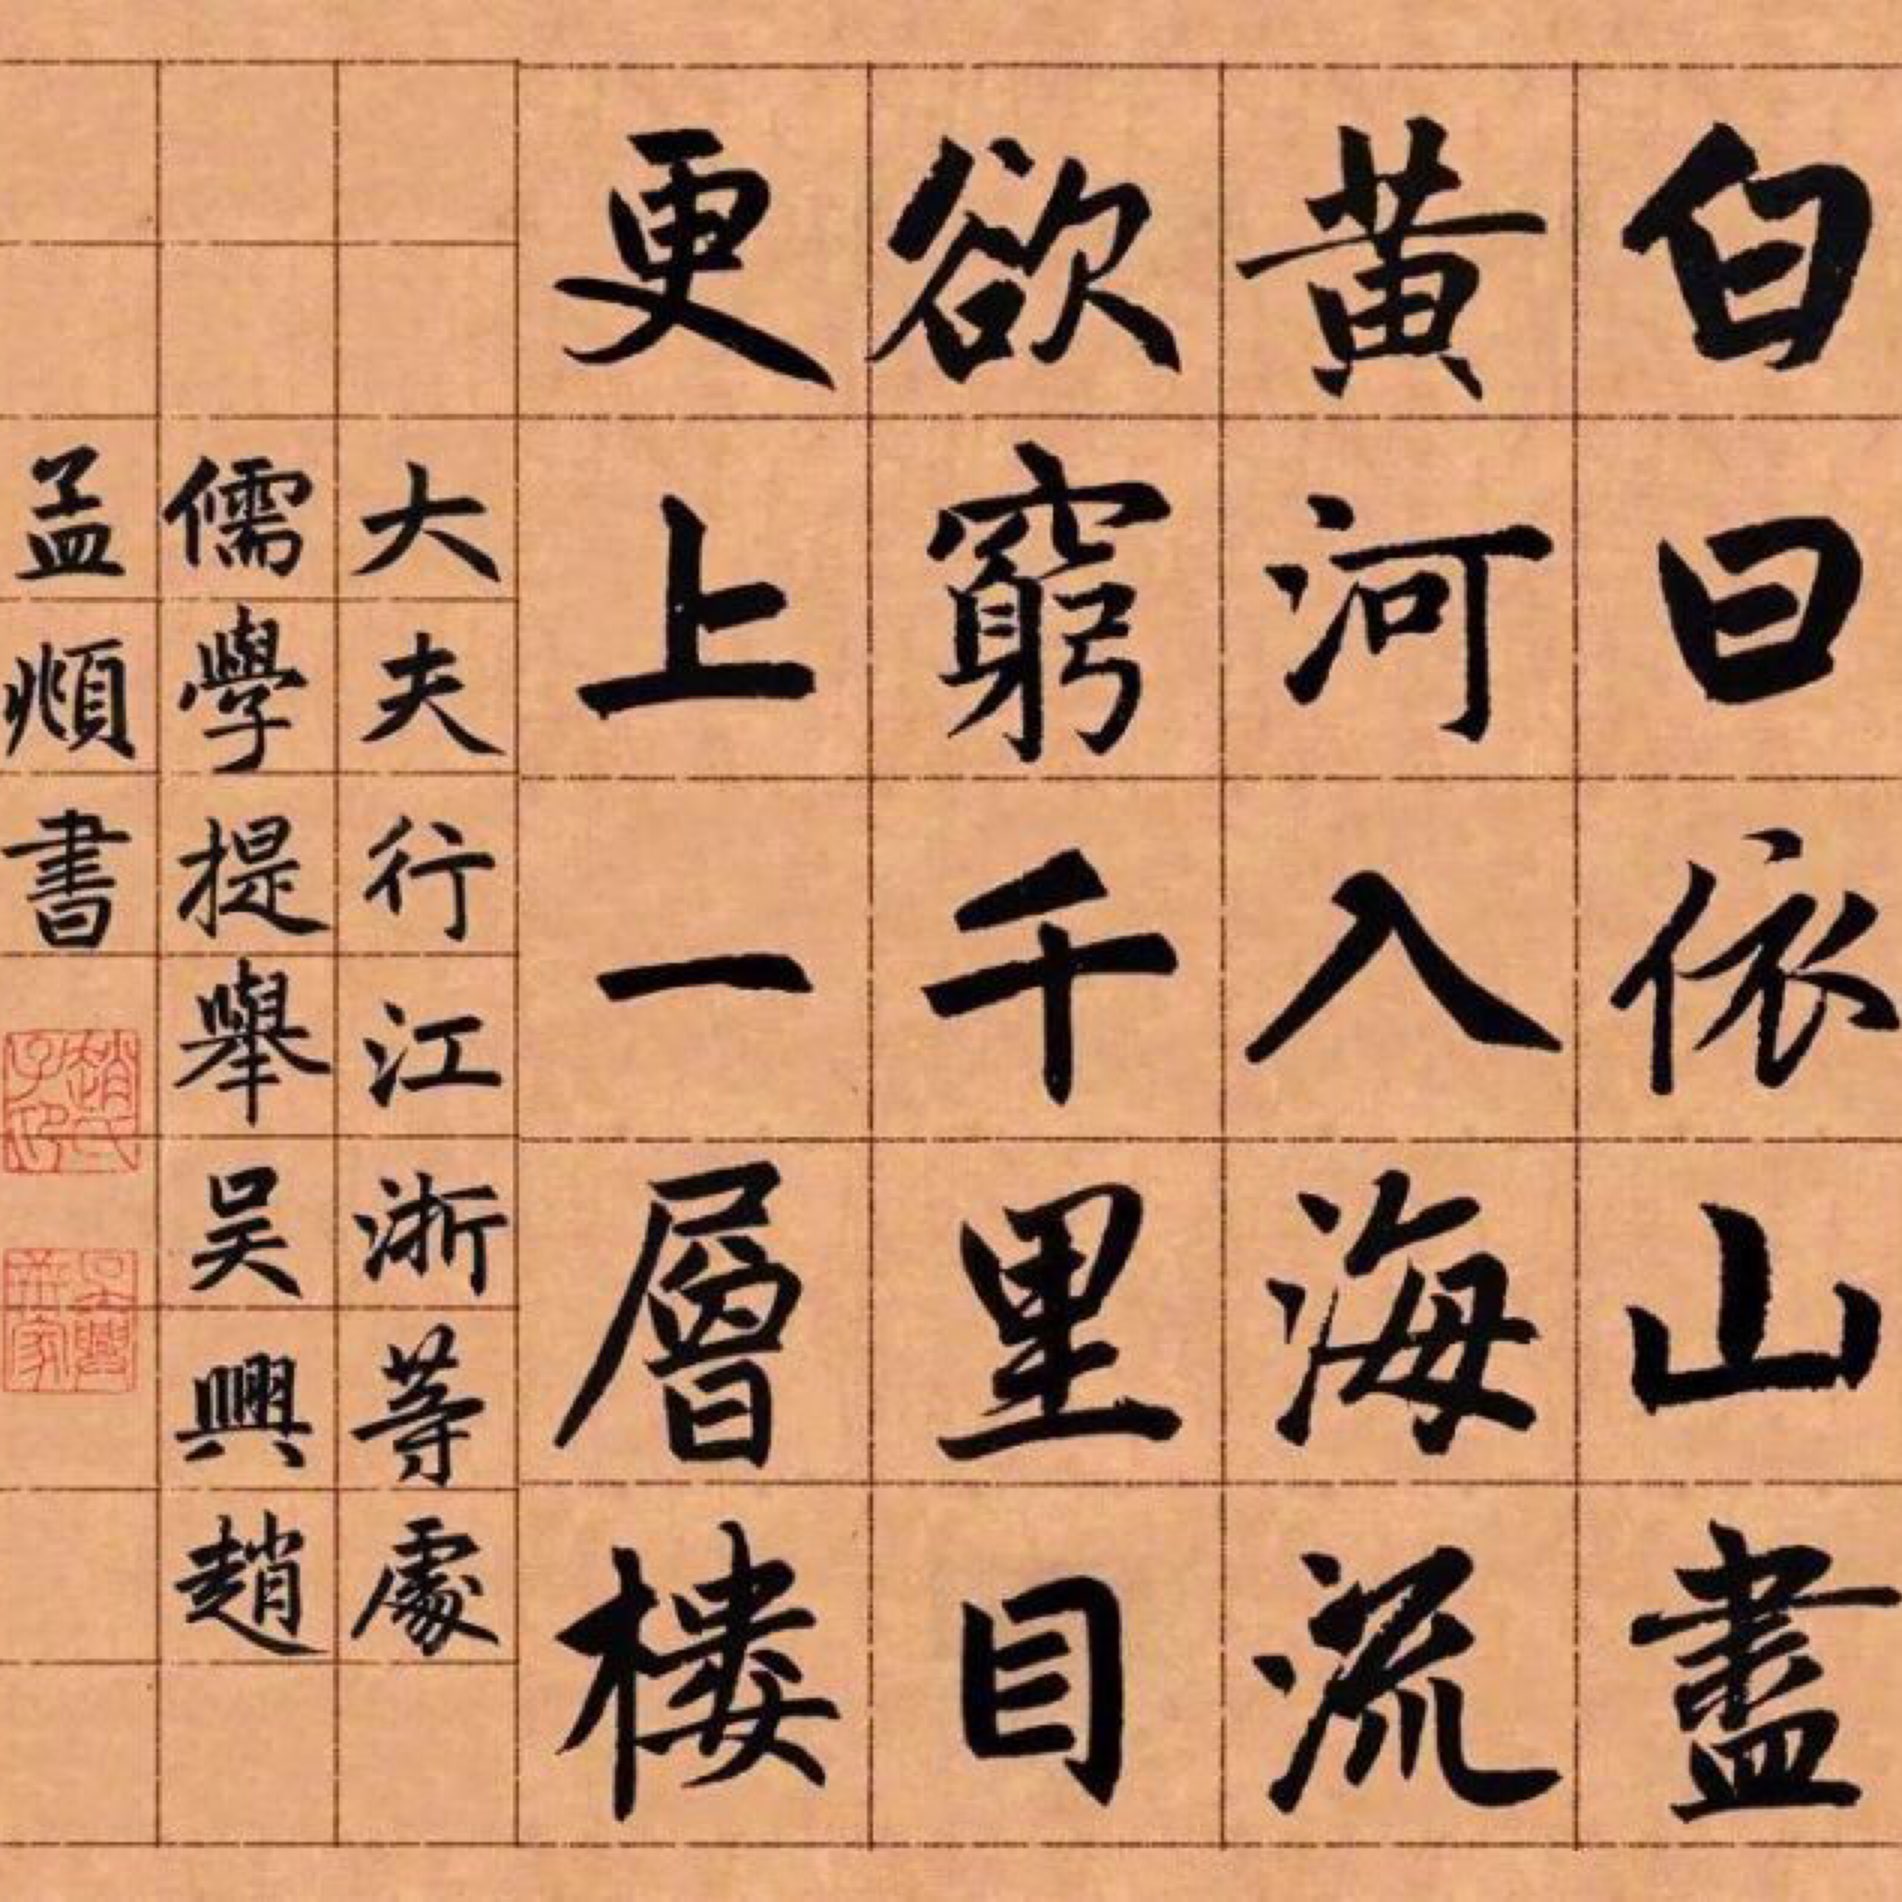 白日依山盡
黄河入海流
欲窮千里目
更上一層樓
大夫行江浙等處
儒學提舉吴興趙
孟頫書